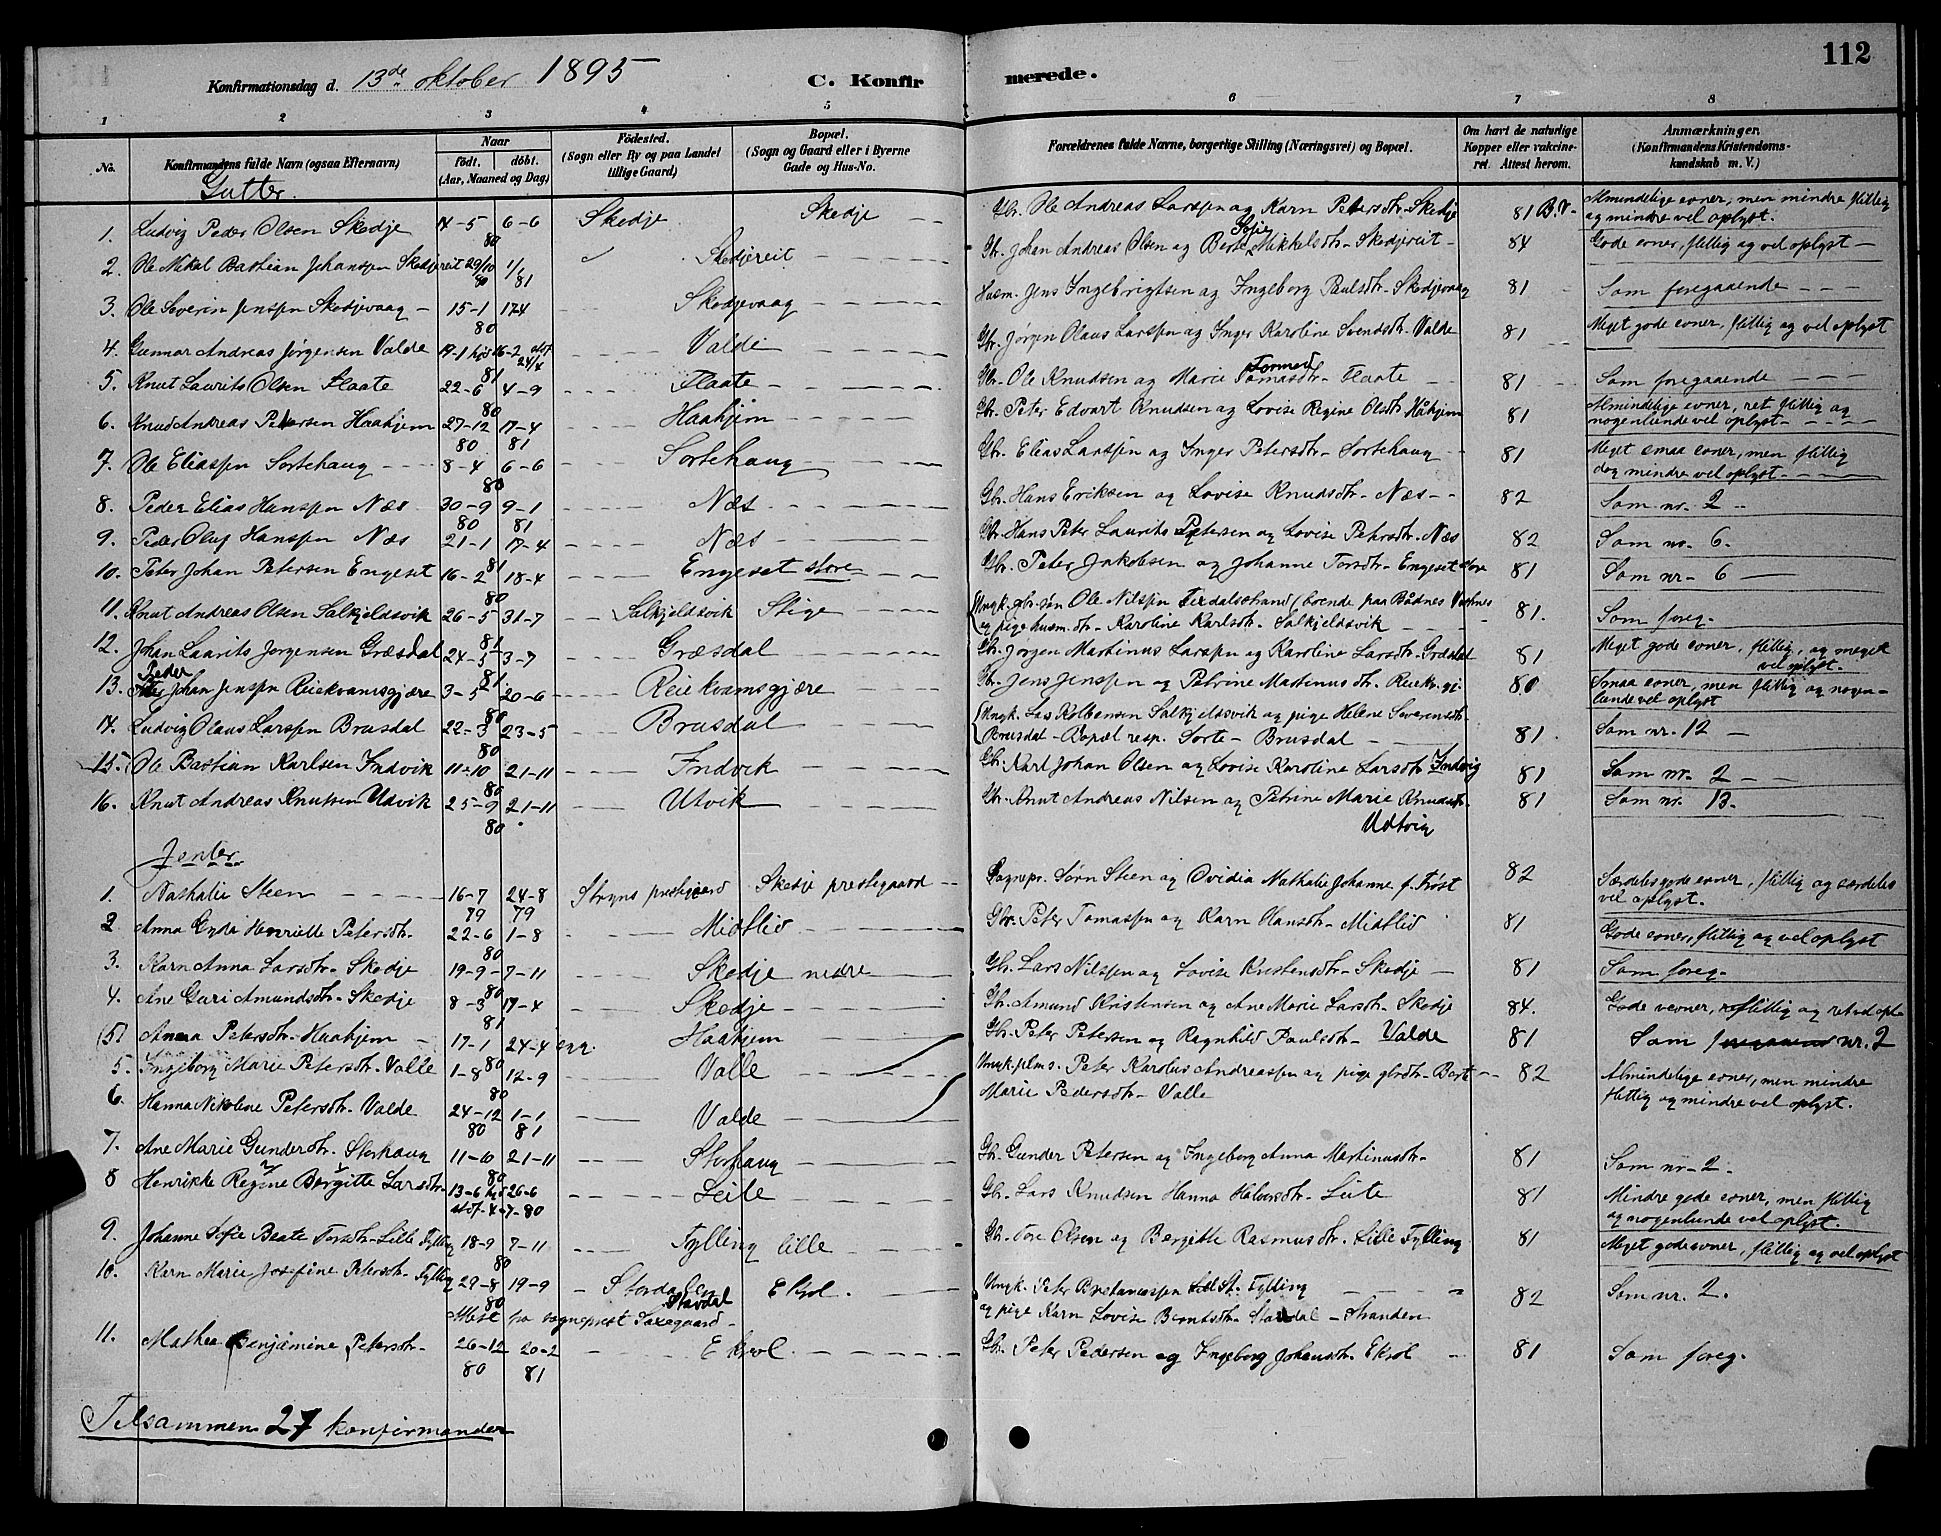 112
Konfirmationsdag d. 13de oktober 1895 C. Konfirmerede.
1 2 3 4 5 6 7 8
No. Konfirmandens fulde Navn (ogsaa Efternavn) Naar födt. döbt. (Aar, Maaned og Dag) Födested. (Sogn eller By og paa Landet tillige Gaard) Bopæl. (Sogn og Gaard eller i Byerne Gade og Hus-No. Forældrenes fulde Navne, borgerlige Stilling (Næringsvei) og Bopæl. Om havt de naturlige Kopper eller vaccineret. Attest herom. Anmærkninger. (Konfirmandens Kristendomskundskab m. V.)
Gutter.
1. Ludvig Peder Olsen Skodje 4-5 80 6-6 Skodje Skodje Gbr. Ole Andreas Larssen og Karn Petersdtr. Skodje 81 B.V. Almindelige evner, men mindre flittig og mindre vel oplyst.
2. Ole Mikal Bastian Johanssen Skodjereit 29/10 80 81 Skodjereit Gbr. Johan Andreas Olsen og Berte Sofie Mikkelsdtr. Skodjereit 84 Gode evner, flittig og vel oplyst
3. Ole Severin Jenssen Skodjevaag 15-1 80 17-4 Skodjevaag Husm. Jens Ingebrigtsen og Ingeborg Paulsdtr. Skodjevaag 81 Som foregaaende
4. Gunnar Andreas Jørgensen Valde 17-1 hjd 16-2 stdf 24/4 81 Valde Gbr. Jørgen Olaus Larssen og Inger Karoline Svendsdtr. Valde 81 Meget gode evner, flittig og vel oplyst
5. Knut Laurits Olsen Flaate 22-6 80 4-9 Flaate Gbr. Ole Knudsen og Marie Tomasdtr. Flaate 81 Som foregaaende
6. Knud Andreas Petersen Haahjem 27-12 80 17-4 81 Haahjem Gbr. Peter Edvart Knudsen og Lovise Regine Olsdtr. Håhjem 81 Almindelige evner, ret flittig og nogenlunde vel oplyst
7. Ole Eliassen Sortehaug 8-4 80 6-6 Sortehaug Gbr. Elias Larssen og Inger Petersdtr. Sortehaug 81 Meget smaa evner, men flittig dog mindre vel oplyst
8. Peder Elias Hanssen Næs 30-9 80 9-1 81 Næs Gbr. Hans Eriksen og Lovise Knudsdtr. Næs 82 Som nr. 2
9. Peder Oluf Hanssen Næs 21-1 81 17-4 Næs Gbr. Hans Peter Laurits Petersen og Lovise Petersdtr. Næs 82 Som nr. 6.
10. Peter Johan Petersen Engeset 16-2 80 18-4 Engeset store Gbr. Peter Jakobsen og Johanne Torsdtr. Engeset store 81 Som nr. 6
11. Knut Andreas Olsen Salkjeldsvik 26-5 81 31-7 Salkjeldsvik Stige Ungk. gbr. søn Ole Nilssen (boende paa Bådnes og pige husm. dtr. Karoline Karlsdtr. Salkjeldsvik 81. Som foreg.
12. Johan Laurits Jørgensen Græsdal 24-5 81 3-7 Græsdal Gbr. Jørgen Martinus Larssen og Karoline Larsdtr. Græsdal 81 Meget gode evner, flittig, og meget vel oplyst.
13. Peder Johan Jenssen Reiekvamsgjære 3-5 80 20-6 Reiekvamsgjære Gbr. Jens Jenssen og Petrine Martinusdtr. Reiekv.gj. 80 Smaa evner, men flittig og nogenlunde vel oplyst
14. Ludvig Olaus Larssen Brusdal 22-3 80 23-5 Brusdal Ungk. Lars Kolbensen Salkjeldsvik og pige Helene Severensdtr. Brusdal - Bopæl resp. Sorte - Brusdal 81 Som nr. 12
15. Ole Bastian Karlsen Indvik 11-10 80 21-11 Indvik Gbr. Karl Johan Olsen og Lovise Karoline Larsdtr. Indvig 81 Som nr. 2
16. Knut Andreas Knutsen Udvik 25-9 80 21-11 Utvik Gbr. Knut Andreas Nilsen og Petrine Marie Knudsdtr. Udtvig 81 Som nr. 13.
Jenter
1. Nathalie Steen 16-7 79 24-8 79 Stryns prestegaard Skodje prestegaard Sognepr. Sørn Steen og Ovidia Nathalie Johanne f. Frost 82 Særdeles gode evner, flittig og særdeles vel oplyst.
2. Anna Gyda Henriette Petersdtr. 22-6 80 1-8 Midtlid Gbr. Peter Tomassen og Karn Hansdtr. Midtlid 81 Gode evner, flittig og vel oplyst
3. Karn Anna Larsdtr. Skodje 19-9 80 7-11 Skodje nedre Gbr. Lars Nilssen og Lovise Kristensdtr. Skodje 81 Som foreg.
4. Ane Guri Amundsdtr. Skodje 8-3 81 17-4 Skodje Gbr. Amund Kristensen og Ane Marie Larsdtr. Skodje 84. Gode evner, flittig og ret vel oplt
(5) Anna Petersdtr. Haahjem 17-1 80 24-4 Haahjem Gbr. Peter Petersen og Ragnhild Paulsdtr. Valde 81 Som nr. 2
5. Ingeborg Marie Petersdtr. Valle 1-8 80 12-9 Valle Ungk. Peter Karolus Andreassen og pige gbrdtr. Berte Marie Pedersdtr. Valle 82 Almindelige evner, men mindre flittig og mindre vel oplyst.
6. Hanna Nikoline Petersdtr. Valde 24-12 80 1-1 81 Valde
7. Ane Marie Gundersdtr. Storhaug 11-10 80 21-11 Storhaug Gbr. Gunder Petersen og Ingeborg Anna Martinusdtr. 81 Som nr. 2.
8 Henrikke Regine Bergitte Larsdtr. 13-6 hjd 26-6 stdf. 4-7-80 Leite Gbr. Lars Knudsen Hanna Halvorsdtr. Leite 81 Mindre gode evner, men flittig og nogenlunde vel oplyst.
9. Johanne Sofie Beate Torsdtr. Lille Fylling 18-9 80 7-11 Fylling lille Gbr. Tore Olsen og Bergitte Rasmusdtr. Lille Fylling 81 Meget gode evner, flittig og vel oplyst
10. Karn Marie Josefine Petersdtr. Fylling 29-8 80 19-9 Stordalen Ekrol. Ungk. Peter Fylling og pige Karn Lovise Berntsdtr. Stordal - Stranden 82 Som nr. 2.
Attest fra sogneprest Saxegaard Stordal
11. Mathea Benjamine Petersdtr. 26-12 80 20-2 81 Ekrol Gbr. Peter Pedersen og Ingeborg Johansdtr. Ekrol 81 Som foreg.
Tilsammen 27 konfirmander